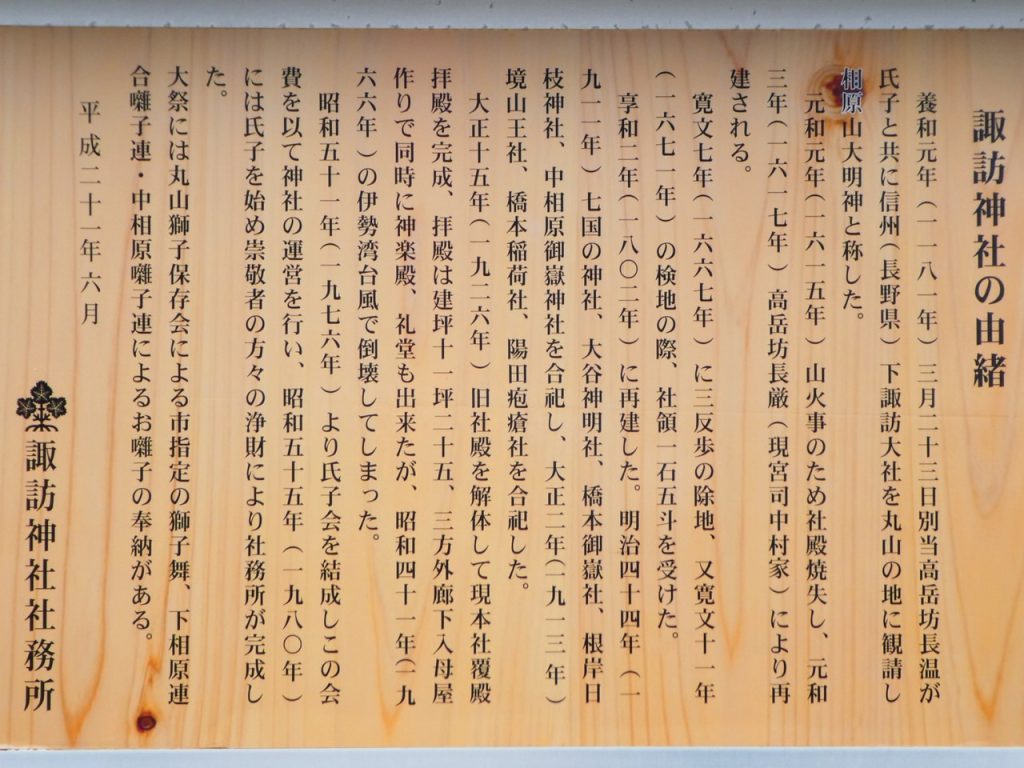 諏訪神社の由緒
養和元年（一一八一年）三月二十三日別当高岳坊長温が
氏子と共に信州（長野県）下諏訪大社を丸山の地に観請し
相原山大明神と称した。
元和元年（一六一五年）山火事のため社殿焼失し、元和
三年（一六一七年）高岳坊長厳（現宮司中村家）により再
建される。
寛文七年（一六六七年）に三反歩の除地、又寛文十一年
（一六七一年）の検地の際、社領一石五斗を受けた。
享和二年（一八〇二年）に再建した。明治四十四年（一
九一一年）七国の神社、大谷神明社、橋本御嶽社、根岸日
枝神社、中相原御嶽神社を合祀し、大正二年（一九一三年）
境山王社、橋本稲荷社、陽田疱瘡社を合祀した。
大正十五年（一九二六年）旧社殿を解体して現本社覆殿
拝殿を完成、拝殿は建坪十一坪二十五、三方外廊下入母屋
作りで同時に神楽殿、礼堂も出来たが、昭和四十一年（一九
六六年）の伊勢湾台風で倒壊してしまった。
昭和五十一年（一九七六年）より氏子会を結成しこの会
費を以て神社の運営を行い、昭和五十五年（一九八〇年）
には氏子を始め崇敬者の方々の浄財により社務所が完成し
た。
大祭には丸山獅子保存会による市指定の獅子舞、下相原連
合囃子連・中相原囃子連によるお囃子の奉納がある。
平成二十一年六月
諏訪神社社務所